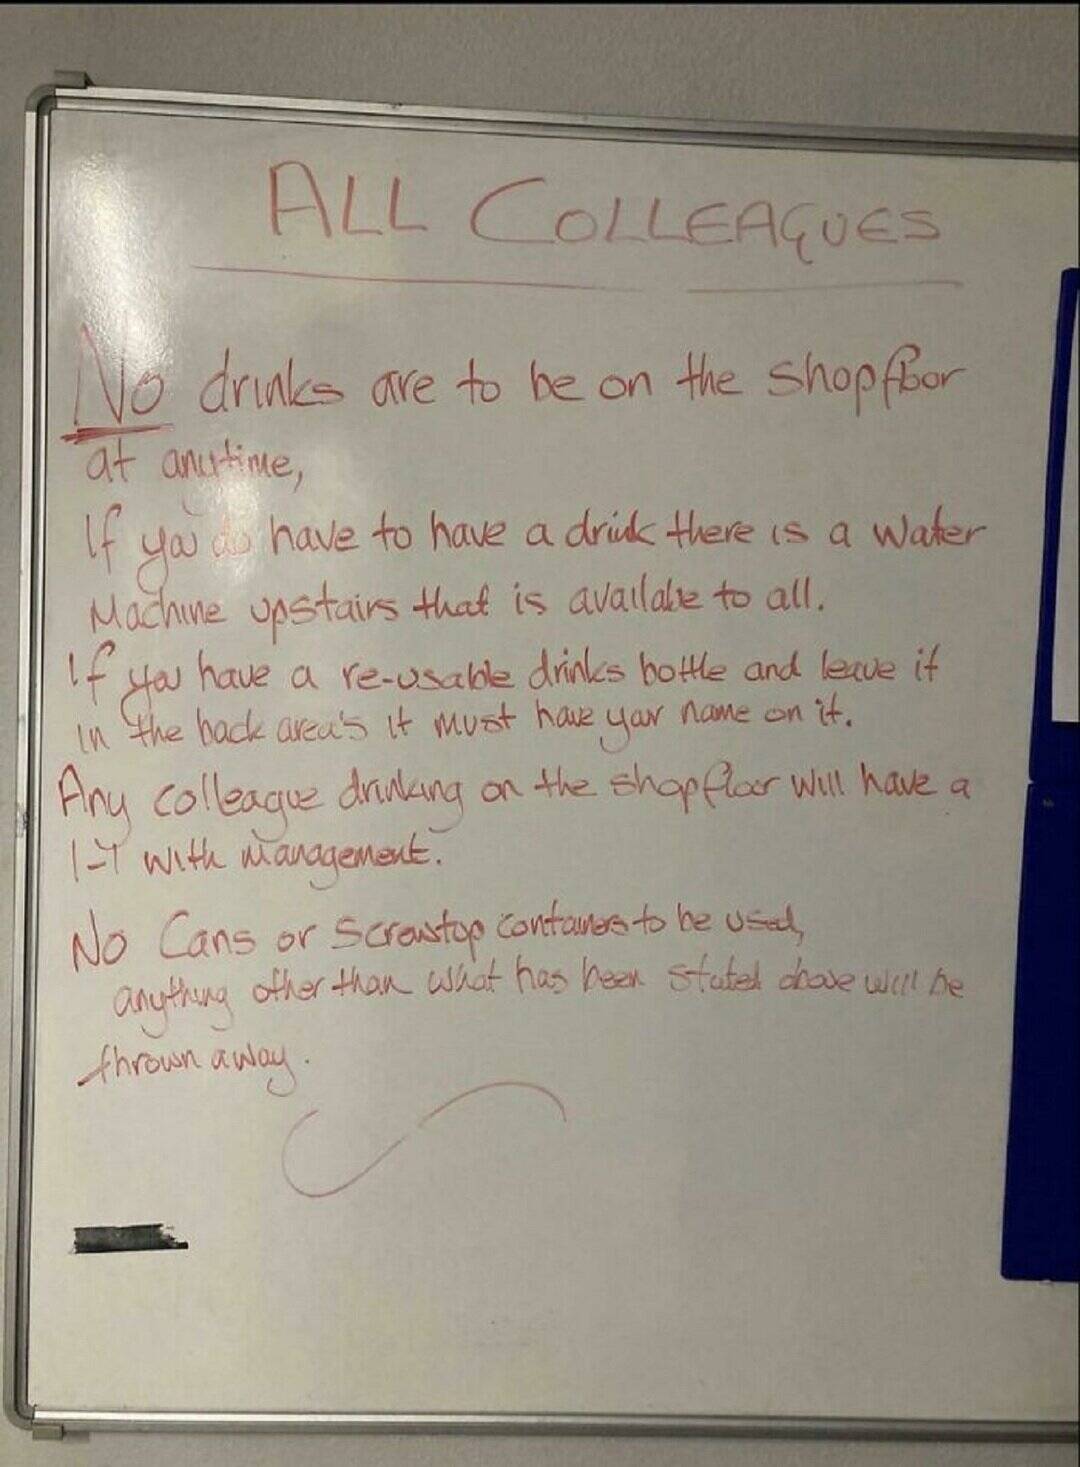 ALL COLLEAGUES
No drinks are to be on the shopfloor
at anytime,
If you do have to have a drink there is a water
Machine upstairs that is available to all.
If you have a re-usable drinks bottle and leave it
in the back area's it must have your name on it.
Any colleague drinking on the shopfloor will have a
1-1 with management.
No Cans or screwtop containers to be used,
anything other than what has been stated above will be
thrown away.